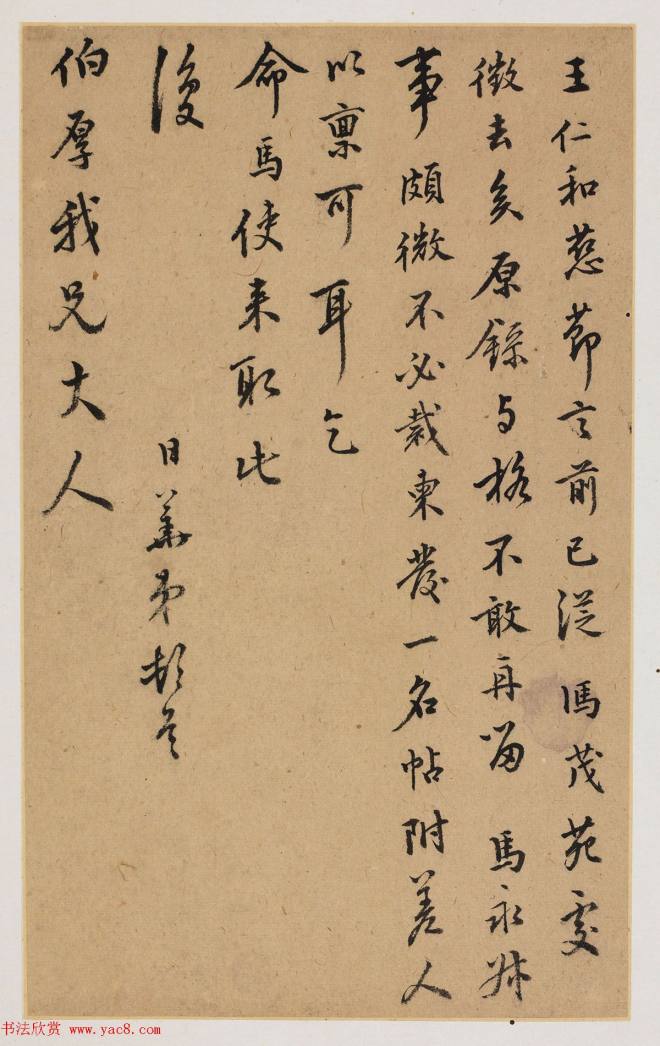 王仁和慈節言前已従馮茂苑處
徵去矣原録与格不敢再留馬永
事頗微不必裁柬發一名帖附差人
以稟可耳乞
命馬使来取此
復
日華弟頓首
伯厚我兄大人
书法欣赏 www.yac8.com